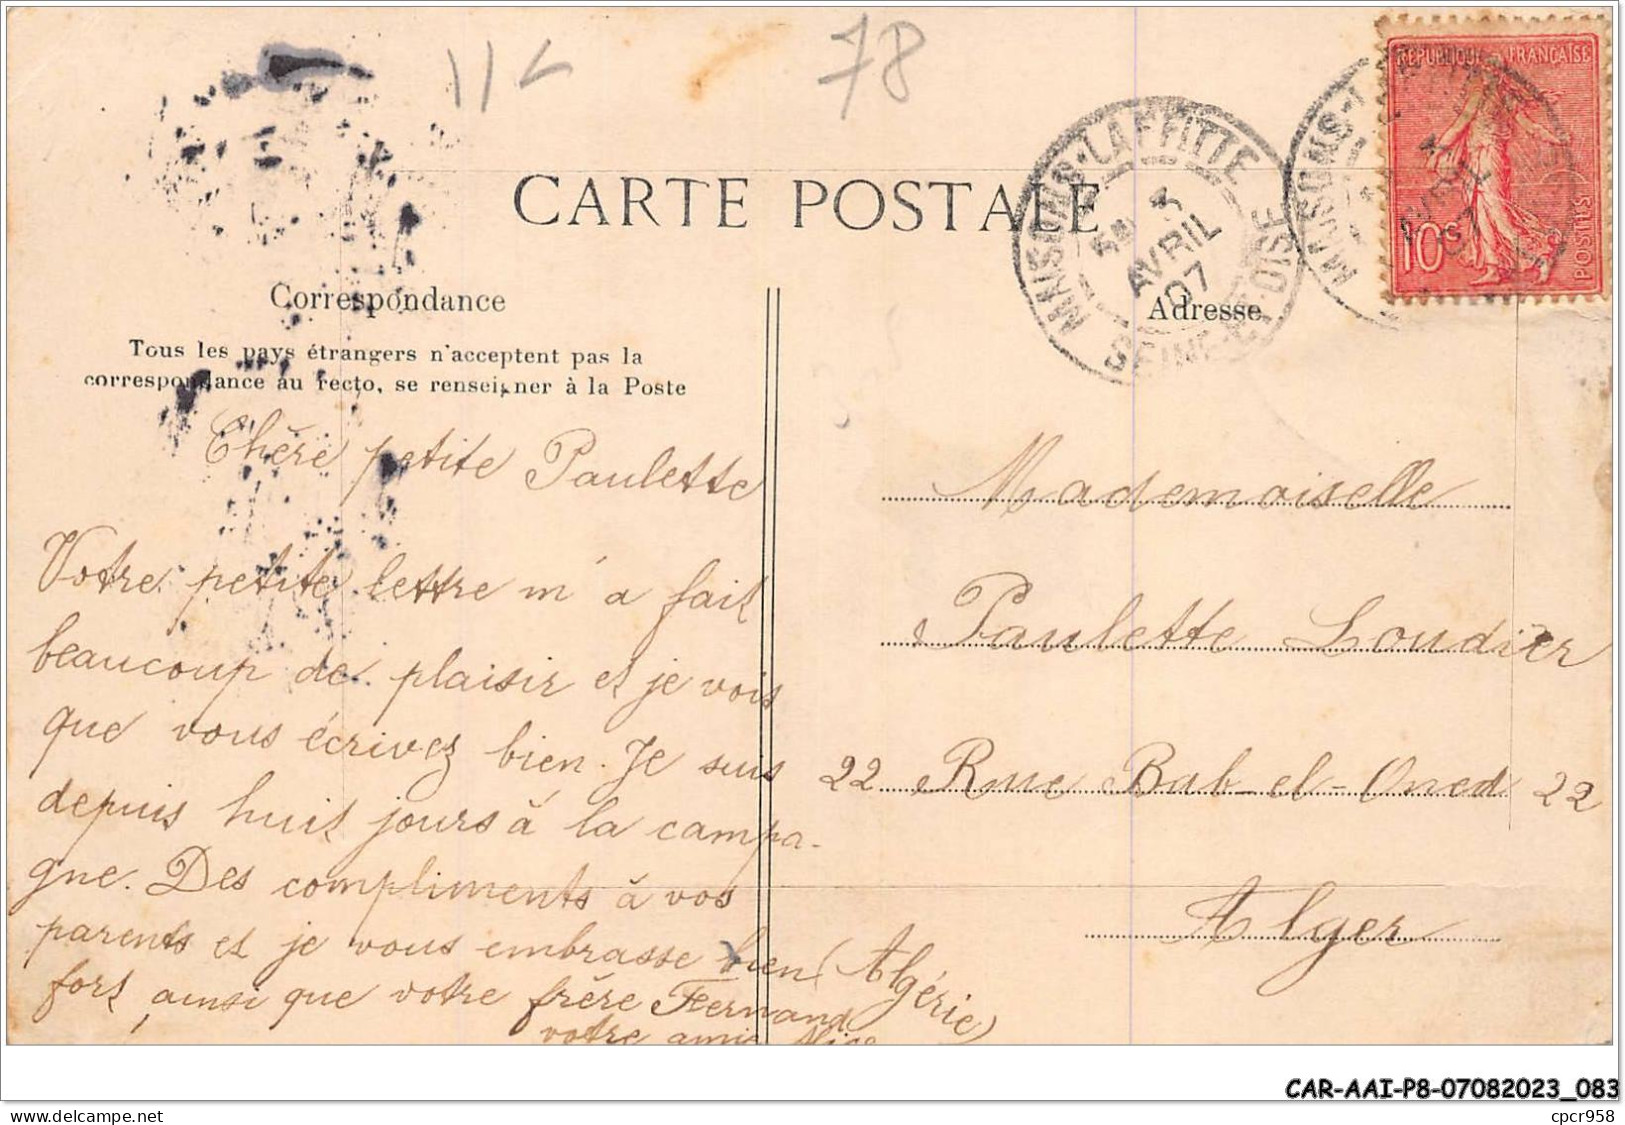 78
RÉPUBLIQUE FRANÇAISE
10c
POSTES
CARTE POSTALE
MAISONS-LAFFITTE
AVRIL
07
SEINE-ET-OISE
MAISONS-
Correspondance
Adresse
Tous les pays étrangers n'acceptent pas la
correspondance au recto, se renseigner à la Poste
Chère petite Paulette
Votre petite lettre m'a fait
beaucoup de plaisir et je vois
que vous écrivez bien. Je suis
depuis huit jours à la campa-
gne. Des compliments à vos
parents et je vous embrasse bien
fort, ainsi que votre frère Fernand
votre amie Alice
Mademoiselle
Paulette Loudier
22 Rue Bab-el-Oued 22
Alger
(Algérie)
CAR-AAI-P8-07082023_083
www.delcampe.net
cpcr958